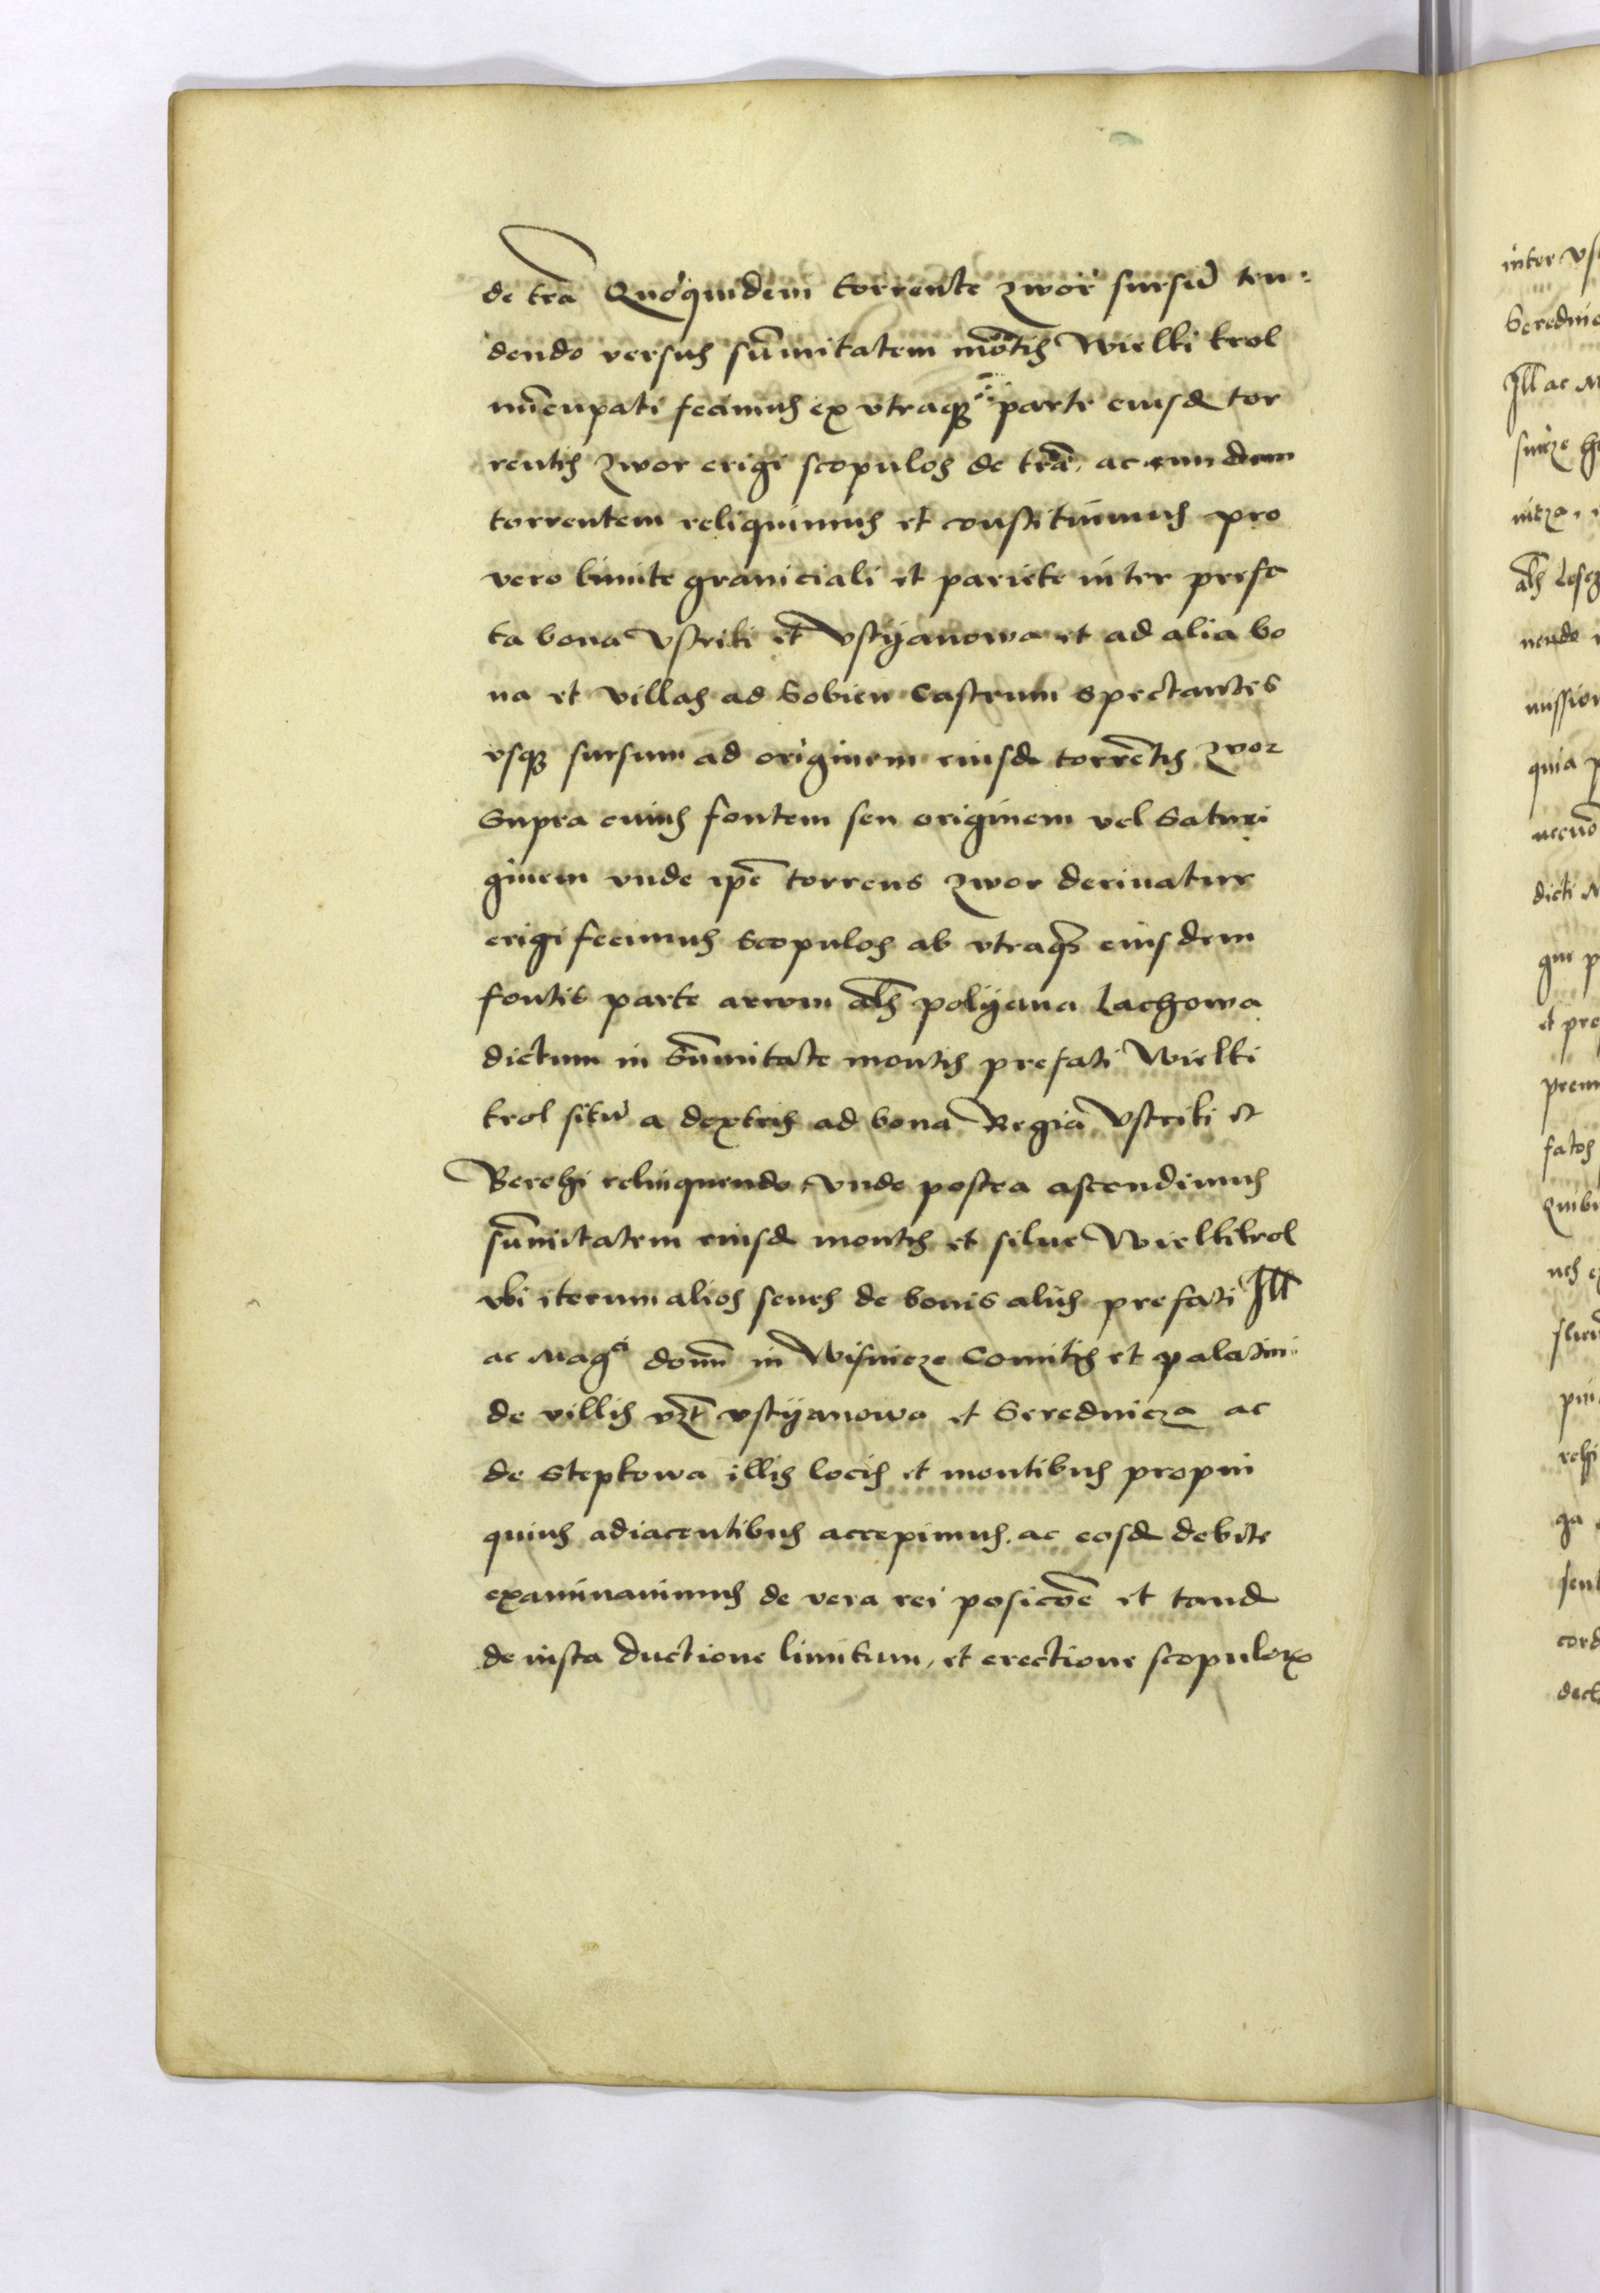 de tr̃a Quoquidem torrente zwor sursũ ten=
dendo versus sũmitatem mõtis Wielki krol
nũcupati fecimus ex vtraqꝫ parte eiusd tor
rentis Zwor erigi scopulos de tr̃a, ac eundem
torrentem reliquimus et constituimus pro
vero limite graniciali et pariete inter prefa
ta bona Vstriki et Vstyanowa et ad alia bo
na et villas ad Sobien Castrum Spectantes
vsqꝫ sursum ad originem eiusd torrẽtis zwor
Supra cuius fontem seu originem vel Saturi
ginem vnde ip̃e torrens zwor deriuatur
erigi fecimus Scopulos ab vtraqꝫ eiusdem
fontis parte aruum al̃s polyana Lachowa
dictum in Sũmitate montis prefati Wielki
krol sitũ a dextris ad bona Regia Vstriki et
Berehi relinquendo, vnde postea ascendimus
sũmitatem eiusd montis et silue Wielkikrol
vbi iterum alios senes de bonis alijs prefati Ill
ac Magci domĩ in Wisnicze Comitis et palatini
de villis vzt̃ vstyanowa et Serednicza ac
de Stepkowa illis locis et montibus propin
quius adiacentibus accepimus, ac eosd debite
examinauimus de vera rei posicõe et tand
de iusta ductione limitum, et erectione scopulorꝫ

inter Vs
Serednic
Ill ac M
nicza,
al̃s
nendo
mission
quia p
dicti M
et pre
prem
fatos
Quibu
rehi
sent
cord